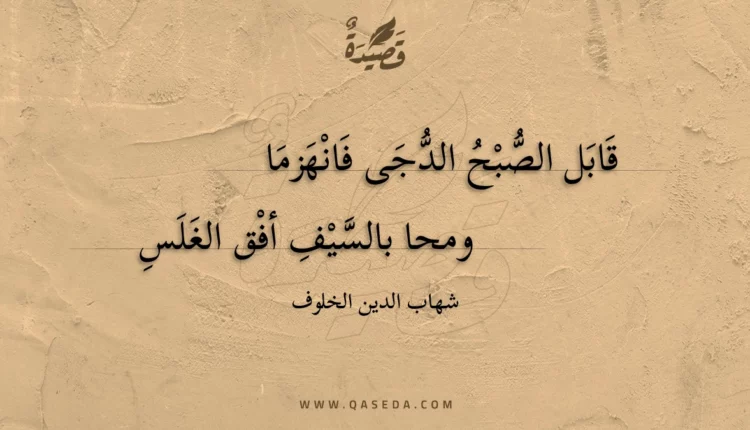 قَصِيْدَةٌ
قَابَل الصُّبْحُ الدُّجَى فَانْهَزمَا
ومحا بالسَّيْفِ أفْق الغَلَسِ
شهاب الدين الخلوف
WWW.QASEDA.COM